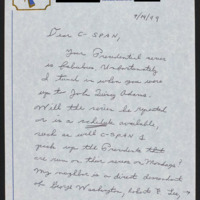 4/19/99
Dear C-SPAN,
Your Presidential series
is fabulous. Unfortunately
I tuned in when you were
up to John Quincy Adams.
Will the series be repeated
or is a schedule available,
such as will C-SPAN 2
pick up the Presidents that
are run on their series on Mondays?
My neighbor is a direct descendant
of George Washington, Robert E. Lee,